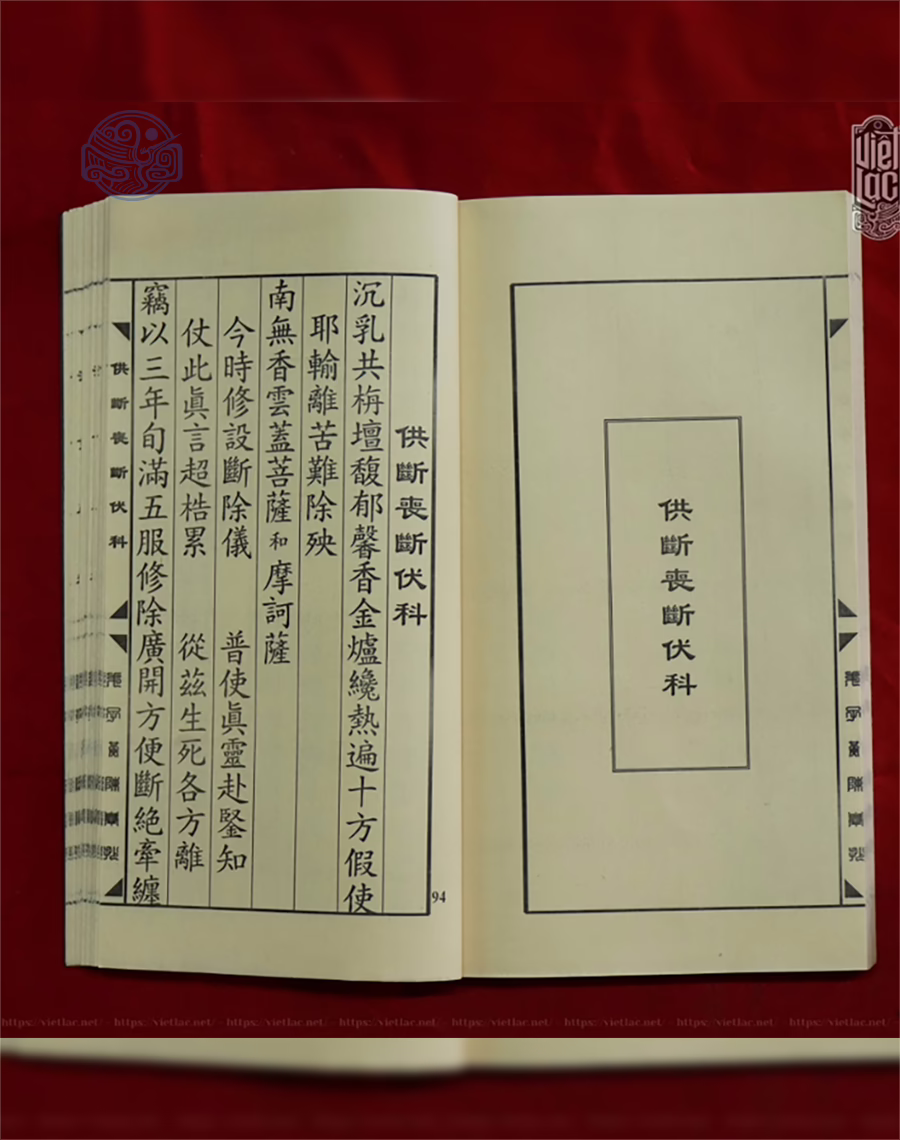 Việt
Lạc
供斷喪斷伏科
供斷喪斷伏科
沉乳共栴壇馥郁馨香金爐纔熱遍十方假使
耶輸離苦難除殃
南無香雲蓋菩薩和摩訶薩
今時修設斷除儀 普使眞靈赴鍳知
仗此眞言超梏累 從茲生死各方離
竊以三年旬滿五服修除廣開方便斷絶牽纏
供斷喪斷伏科
94
https://vietlac.net/ - https://vietlac.net/ - https://vietlac.net/ - https://vietlac.net/ - https://vietlac.net/ - https://vietlac.net/ - https://vietlac.net/ - https://vietlac.net/